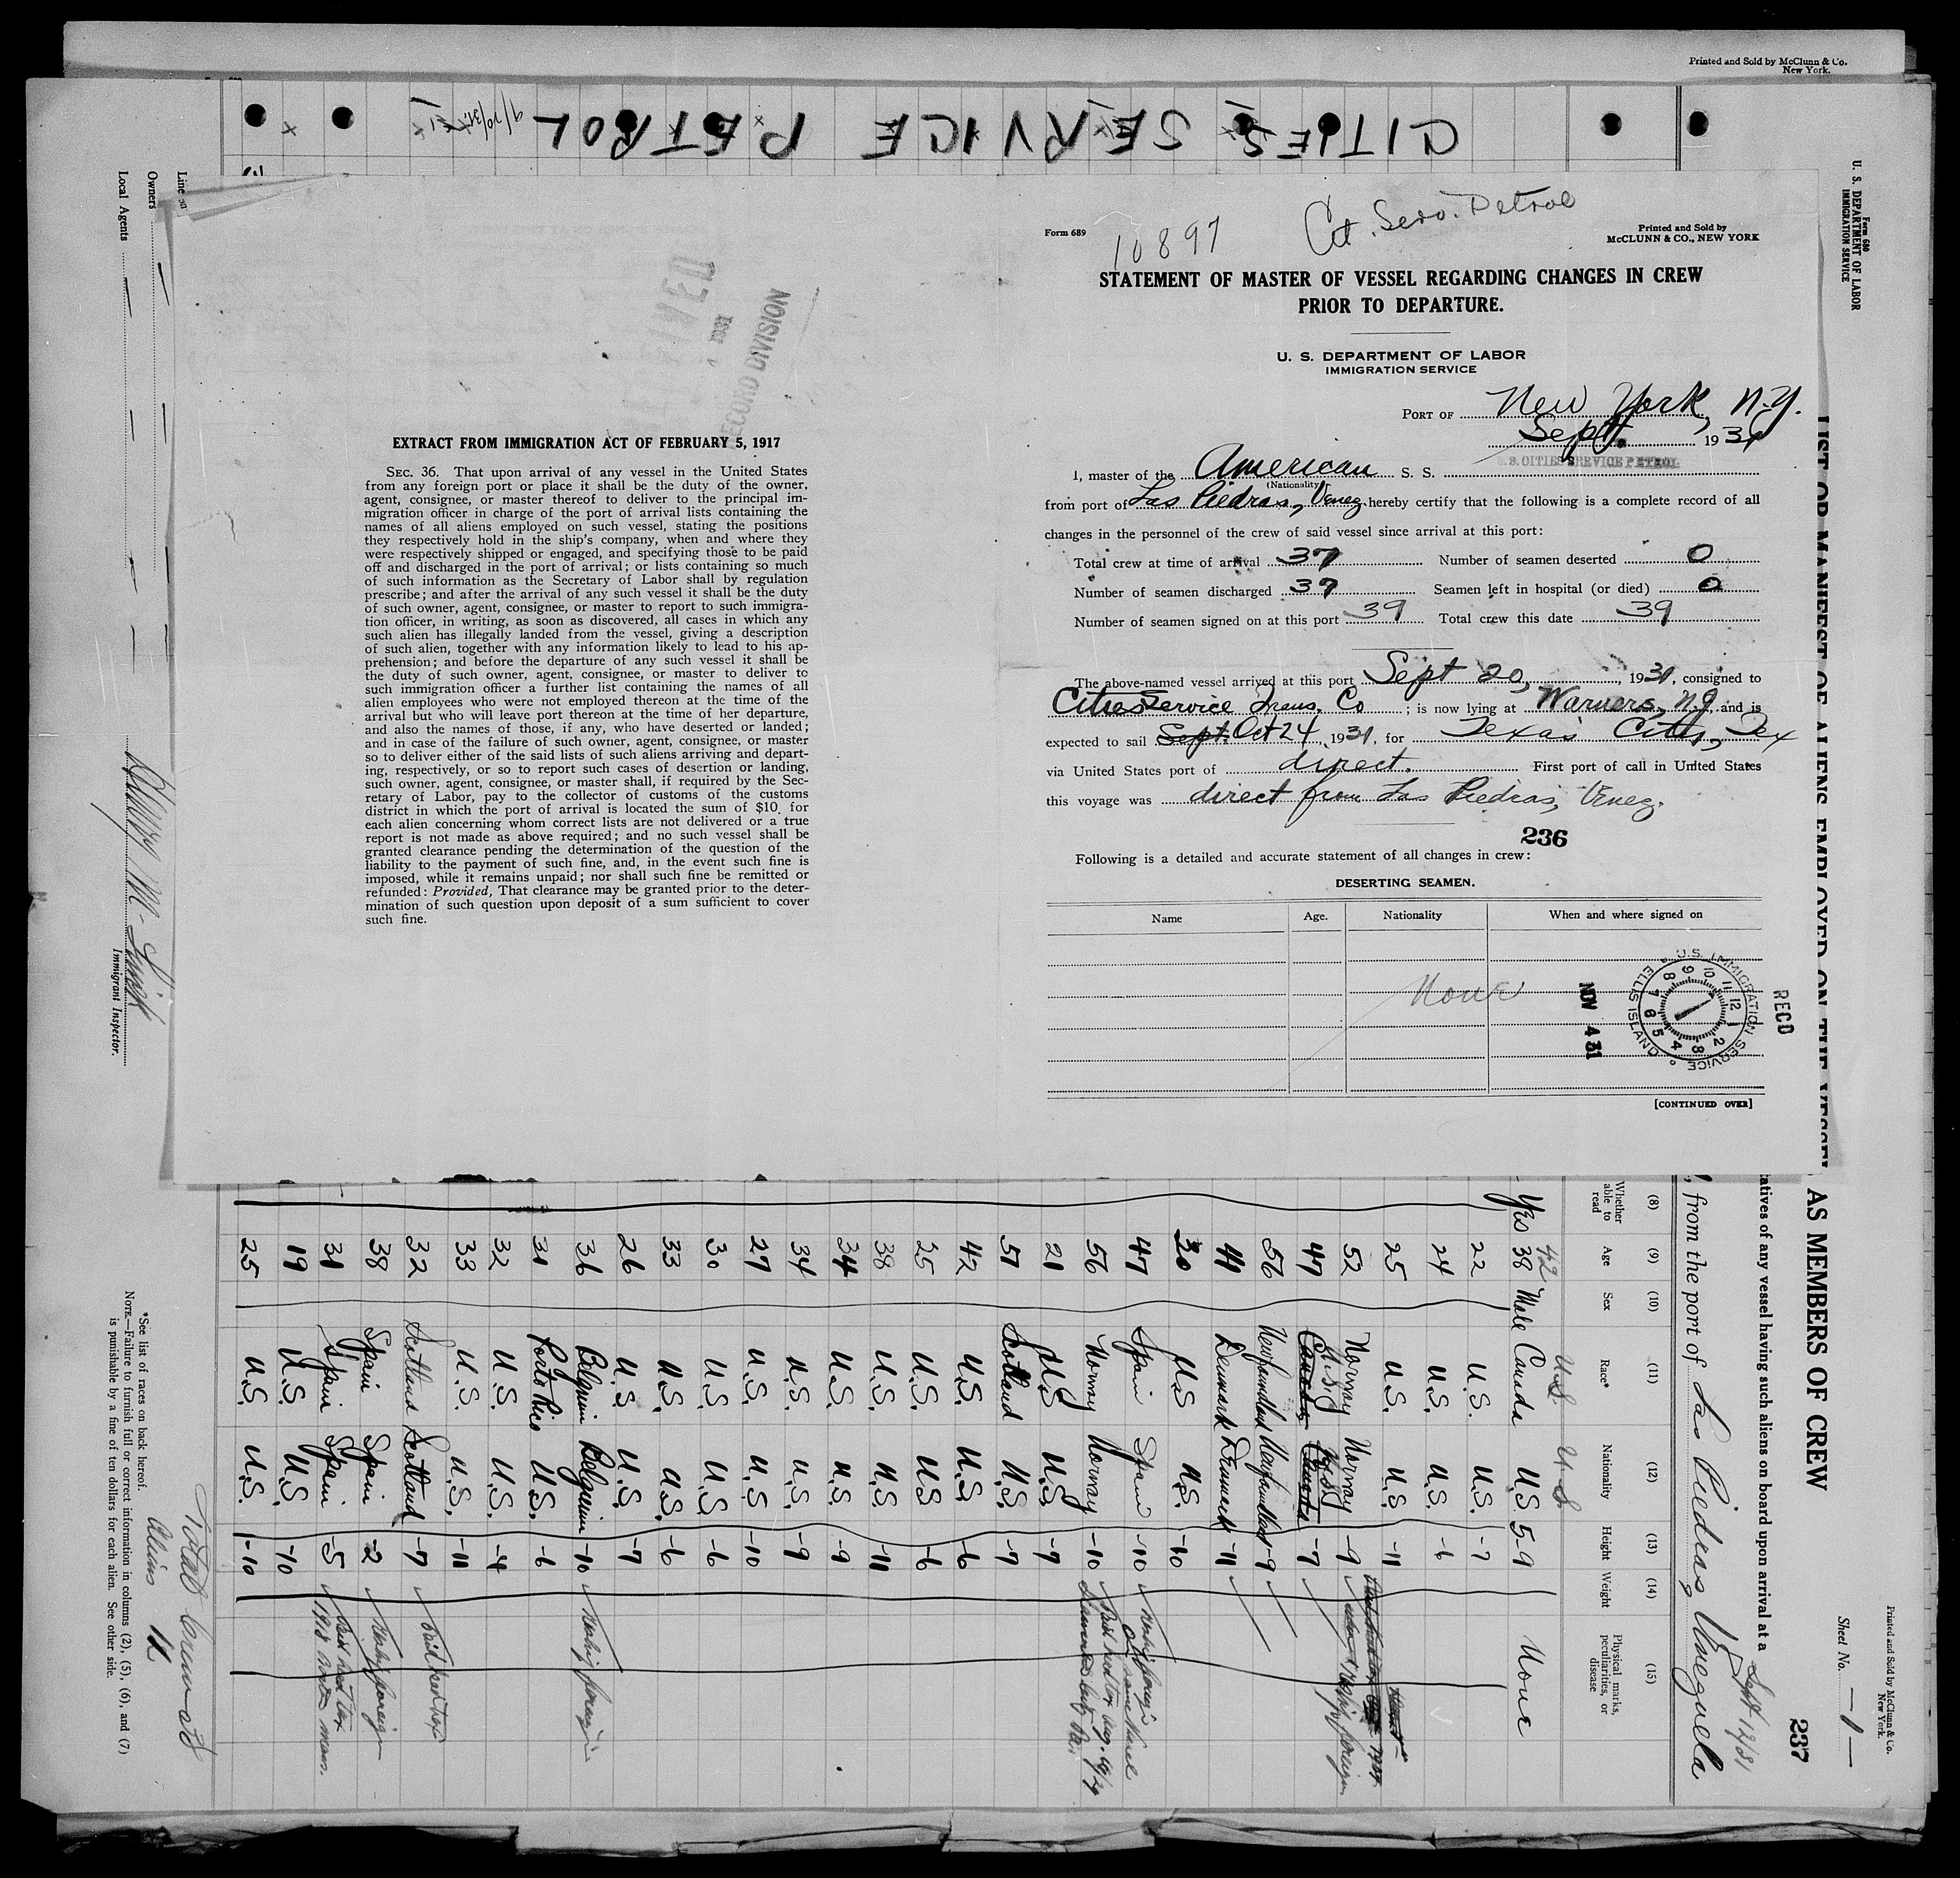 Printed and Sold by McClunn & Co.
New York.
CITIES SERVICE PETROL
9/20/31
Form 689
10897
Cit. Serv. Petrol
Printed and Sold by
McCLUNN & CO., NEW YORK
STATEMENT OF MASTER OF VESSEL REGARDING CHANGES IN CREW
PRIOR TO DEPARTURE.
U. S. DEPARTMENT OF LABOR
IMMIGRATION SERVICE
PORT OF New York, N.Y.
Sept 1931
I, master of the American S. S. S.S. CITIES SERVICE PETROL
(Nationality)
from port of Las Piedras, Venez. hereby certify that the following is a complete record of all
changes in the personnel of the crew of said vessel since arrival at this port:
Total crew at time of arrival 37 Number of seamen deserted 0
Number of seamen discharged 37 Seamen left in hospital (or died) 0
Number of seamen signed on at this port 39 Total crew this date 39
The above-named vessel arrived at this port Sept 20, 1931, consigned to
Cities Service Trans. Co ; is now lying at Warners, N.J. and is
expected to sail Sept. Oct 24, 1931, for Texas City, Tex
via United States port of direct. First port of call in United States
this voyage was direct from Las Piedras, Venez.
236
Following is a detailed and accurate statement of all changes in crew:
DESERTING SEAMEN.
Name Age. Nationality When and where signed on
None
U.S. IMMIGRATION SERVICE
ELLIS ISLAND
NOV 4 31
RECD
[CONTINUED OVER]
RECEIVED
1931
RECORD DIVISION
EXTRACT FROM IMMIGRATION ACT OF FEBRUARY 5, 1917
SEC. 36. That upon arrival of any vessel in the United States
from any foreign port or place it shall be the duty of the owner,
agent, consignee, or master thereof to deliver to the principal im-
migration officer in charge of the port of arrival lists containing the
names of all aliens employed on such vessel, stating the positions
they respectively hold in the ship's company, when and where they
were respectively shipped or engaged, and specifying those to be paid
off and discharged in the port of arrival; or lists containing so much
of such information as the Secretary of Labor shall by regulation
prescribe; and after the arrival of any such vessel it shall be the duty
of such owner, agent, consignee, or master to report to such immigra-
tion officer, in writing, as soon as discovered, all cases in which any
such alien has illegally landed from the vessel, giving a description
of such alien, together with any information likely to lead to his ap-
prehension; and before the departure of any such vessel it shall be
the duty of such owner, agent, consignee, or master to deliver to
such immigration officer a further list containing the names of all
alien employees who were not employed thereon at the time of the
arrival but who will leave port thereon at the time of her departure,
and also the names of those, if any, who have deserted or landed;
and in case of the failure of such owner, agent, consignee, or master
so to deliver either of the said lists of such aliens arriving and depart-
ing, respectively, or so to report such cases of desertion or landing,
such owner, agent, consignee, or master shall, if required by the Sec-
retary of Labor, pay to the collector of customs of the customs
district in which the port of arrival is located the sum of $10 for
each alien concerning whom correct lists are not delivered or a true
report is not made as above required; and no such vessel shall be
granted clearance pending the determination of the question of the
liability to the payment of such fine, and, in the event such fine is
imposed, while it remains unpaid; nor shall such fine be remitted or
refunded: Provided, That clearance may be granted prior to the deter-
mination of such question upon deposit of a sum sufficient to cover
such fine.
Form 680
U. S. DEPARTMENT OF LABOR
IMMIGRATION SERVICE
Printed and Sold by McClunn & Co.
New York.
Sheet No. 1
237
LIST OR MANIFEST OF ALIENS EMPLOYED ON THE VESSEL AS MEMBERS OF CREW
tatives of any vessel having such aliens on board upon arrival at a
Sept 12/31
, from the port of Las Piedras, Venezuela
(8) (9) (10) (11) (12) (13) (14) (15)
Whether able to read Age Sex Race* Nationality Height Weight Physical marks, peculiarities, or disease
42 U.S. U.S
Yes 38 Male Canada U.S 5-9 None
22 U.S. U.S. -7
24 U.S. U.S. -6
25 U.S. U.S. -11
52 Norway Norway -9 Reship foreign
47 Canada U.S. Canada U.S. -7
56 Newfoundland Newfoundland -9
44 Denmark Denmark -11
30 U.S U.S. -10
47 Spain Spain -10 Reship foreign
56 Norway Norway -10 Paid head tax Aug.
21 U.S U.S. -9
57 Scotland U.S. -7
42 U.S. U.S. -6
25 U.S. U.S -6
38 U.S. U.S. -11
34 U.S. U.S. -9
34 U.S. U.S. -9
27 U.S. U.S. -10
30 U.S. U.S. -6
33 U.S. U.S. -6
26 U.S U.S. -7
36 Belgium Belgium -10 Reship foreign
31 Porto Rico U.S. -6
32 U.S. U.S. -4
33 U.S. U.S. -11
32 Scotland Scotland -7 Paid head tax
38 Spain Spain -2 Reship foreign
31 Spain Spain -5 Paid head tax 1918 Boston Mass.
19 U.S. U.S. -10
25 U.S. U.S. -10
Total crew 38
Aliens 12
*See list of races on back hereof.
NOTE.—Failure to furnish full or correct information in columns (2), (5), (6), and (7)
is punishable by a fine of ten dollars for each alien. See other side.
Line
Owners
Local Agents
Immigrant Inspector.